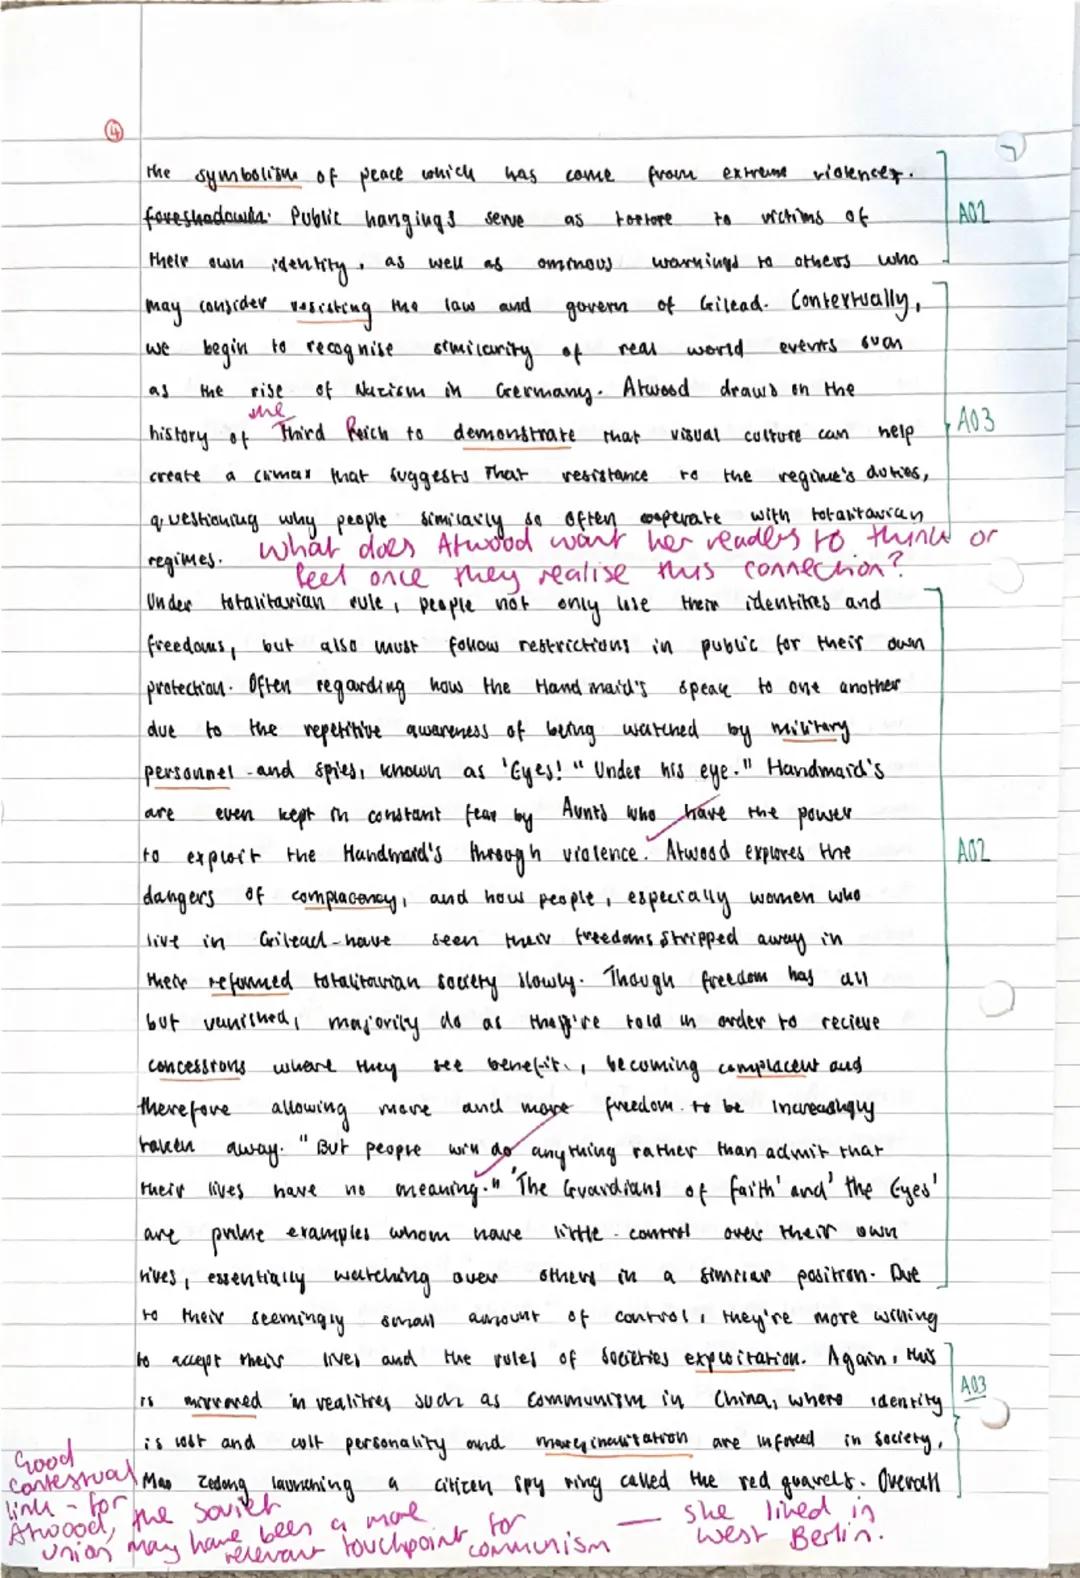 ④
the symbolism of peace which has come from extreme violence. AO2
foreshadowin. Public hangings serve as tortore to victims of
their own identity, as well as ominous warnings to others who
may consider resisting the law and govern of Gilead. Contextually,
we begin to recognise similarity of real world events such
as the rise of Nazism in Germany. Atwood draws on the
the
history of Third Reich to demonstrate that visual culture can help AO3
create a climax that suggests that resistance to the regime's duties,
questioning why people similarly so often cooperate with totalitarian
regimes. What does Atwood want her readers to think or
feel once they realise this connection?
Under totalitarian rule, people not only lose their identities and
freedoms, but also must follow restrictions in public for their own
protection. Often regarding how the Handmaid's speak to one another
due to the repetitive awareness of being watched by military
personnel - and spies, known as 'Eyes! "Under his eye." Handmaid's
are even kept in constant fear by Aunts who have the power
to exploit the Handmaid's through violence. Atwood explores the AO2
dangers of complacency, and how people, especially women who
live in Gilead - have seen their freedoms stripped away in
their reformed totalitarian society slowly. Though freedom has all
but vanished, majority do as they're told in order to recieve
concessions where they see benefit, becoming complacent and
therefore allowing more and more freedom to be increasingly
taken away. "But people will do anything rather than admit that
their lives have no meaning." 'The Guardians of faith' and 'the Eyes'
are prime examples whom have little control over their own
lives, essentially watching over others in a similar position. Due
to their seemingly small amount of control, they're more willing
to accept their lives and the rules of societies exploitation. Again, this
is mirrored in realities such as communism in China, where identity AO3
is lost and cult personality and marginalisation are inforced in society,
Mao Zedong launching a citizen spy ring called the red guards. Overall
Good
contextual
link - for
Atwood, the Soviet
union may have been a more
relevant touchpoint for
communism — she lived in
West Berlin.